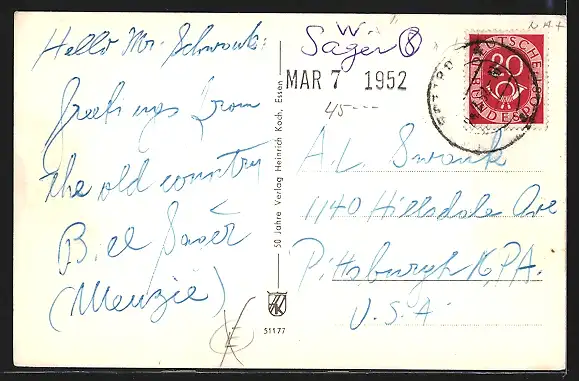 Hello Mr. Schwank:
Greetings from
the old country
Bill Sager
(Menzie)
W. A.
Sager
MAR 7 1952
45---
20
DEUTSCHE
BUNDESPOST
A. L. Swank
1140 Hillsdale Ave
Pittsburgh 16, PA.
U.S.A.
50 Jahre Verlag Heinrich Koch, Essen
51177